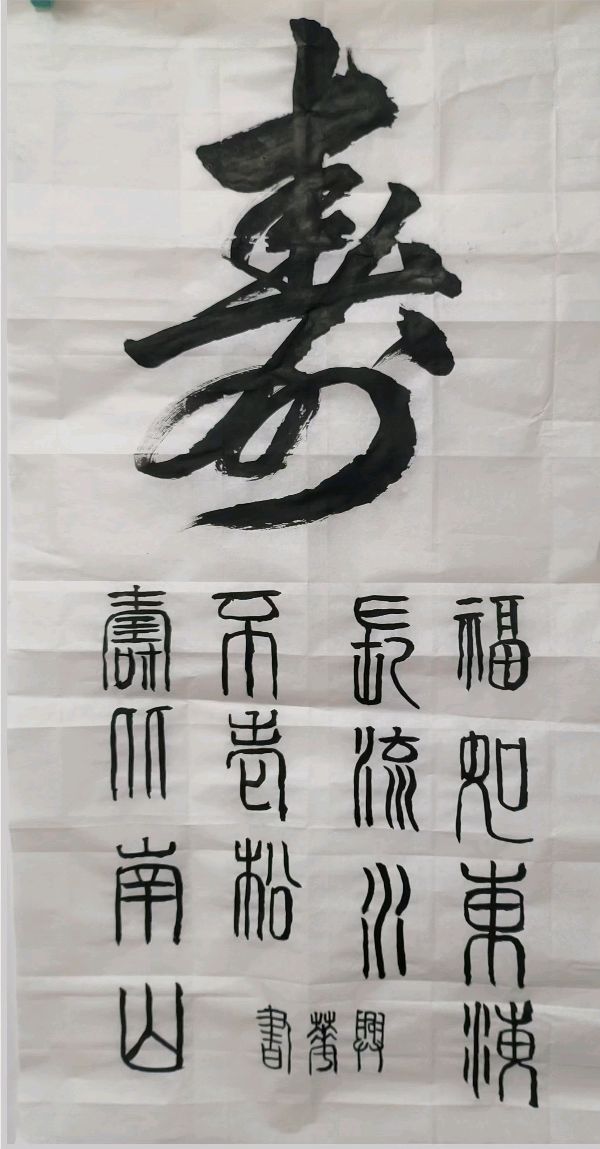 壽
福如東海
長流水
壽比南山
不老松
興華書